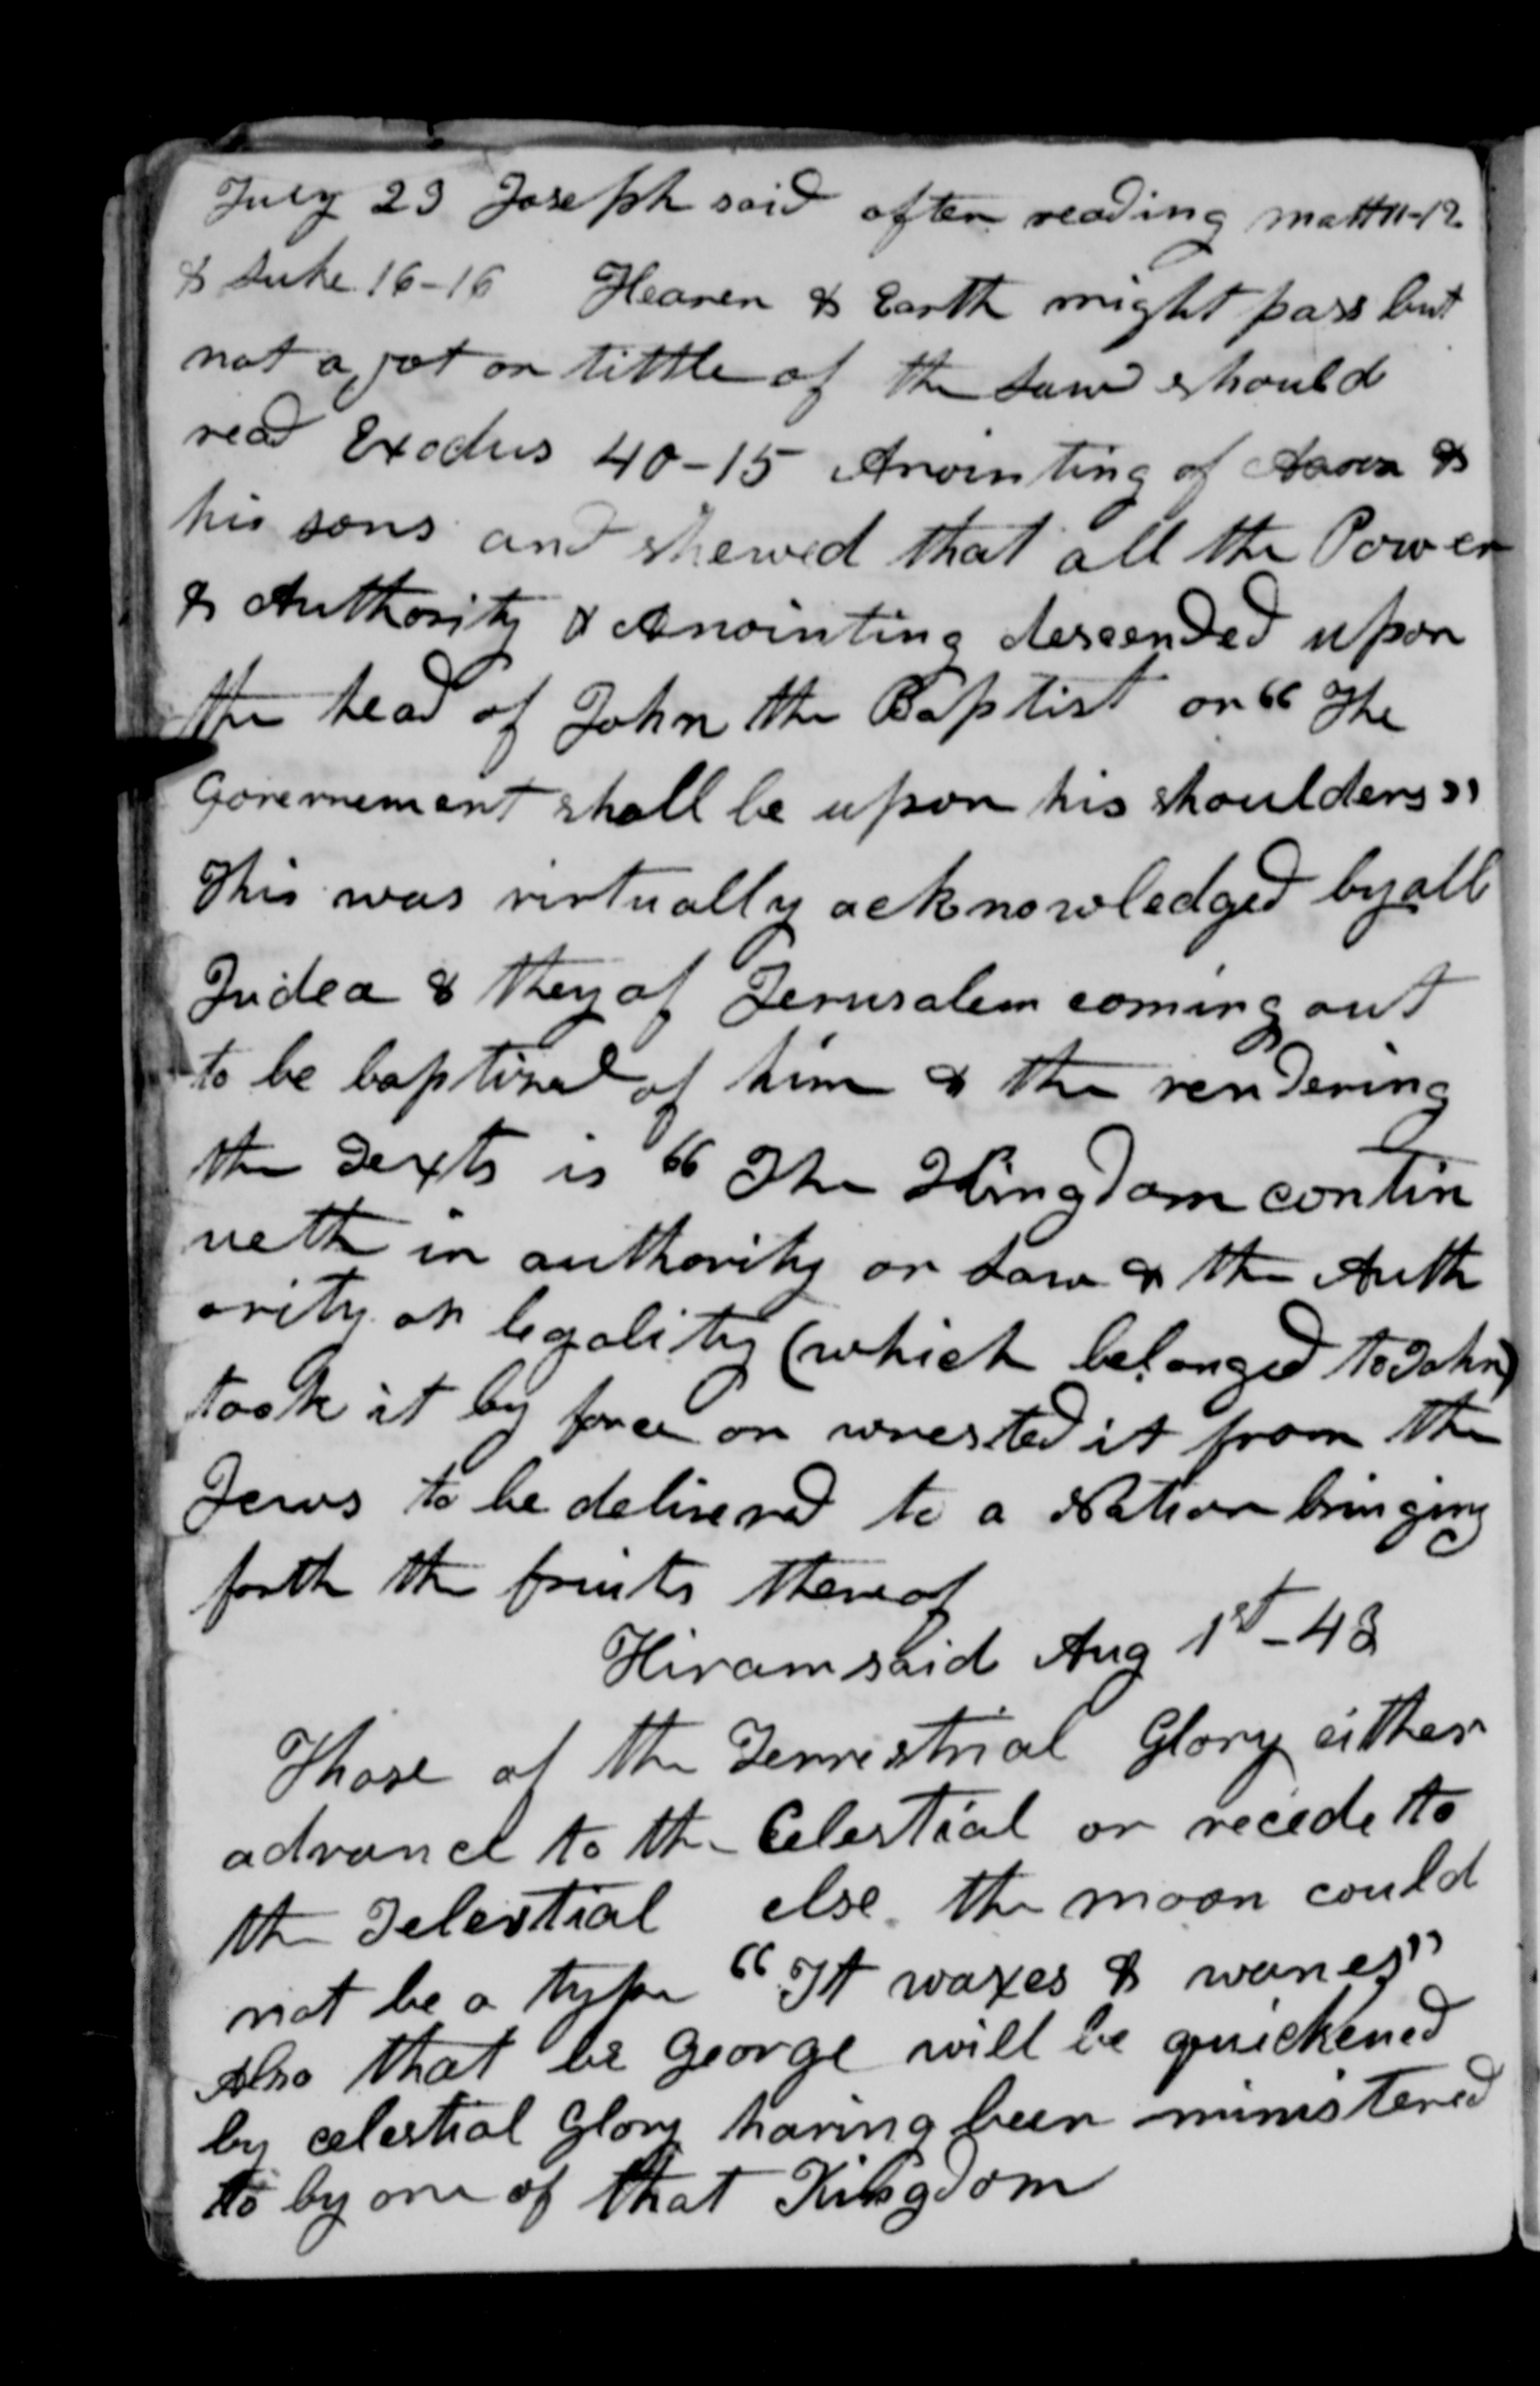 July 23 Joseph said after reading Matt 11-12
& Luke 16-16 Heaven & Earth might pass but
not a jot or tittle of the Law should
read Exodus 40-15 Anointing of Aaron &
his sons and shewed that all the Power
& Authority & Anointing descended upon
the head of John the Baptist or "The
Governement shall be upon his shoulders"
This was virtually acknowledged by all
Judea & they of Jerusalem coming out
to be baptized of him & the rendering
the Texts is "The Kingdom contin
ueth in authority or Law & the Auth
ority or legality (which belonged to John)
took it by force or wrested it from the
Jews to be delivered to a Nation bringing
forth the fruits thereof
Hiram said Aug 1st - 43
Those of the Terrestrial Glory either
advance to the Celestial or recede to
the Telestial else the moon could
not be a type "It waxes & wanes"
Also that br George will be quickened
by celestial Glory having been ministered
to by one of that Kingdom